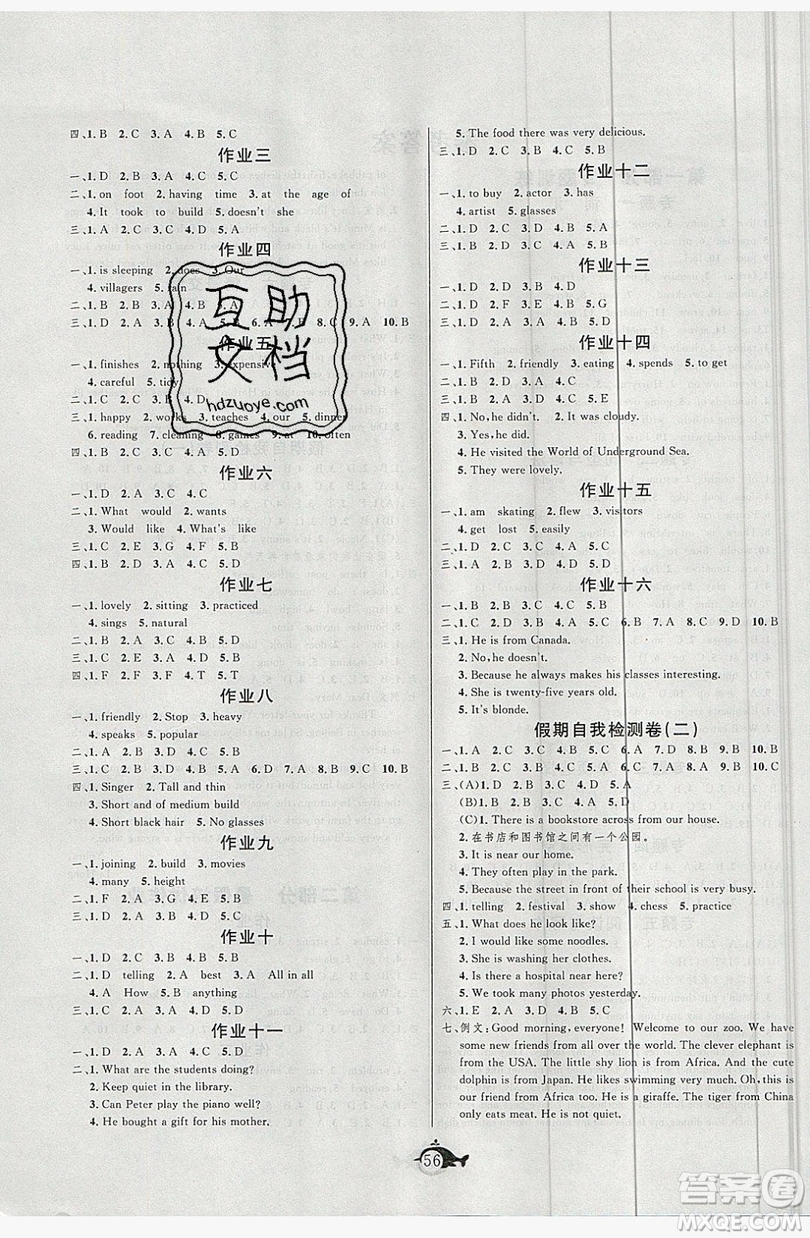 四、1. B 2. C 3. A 4. B 5. C
作业三
一、1. D 2. B 3. A 4. C 5. D
二、1. on foot 2. having time 3. at the age of
4. It took to build 5. doesn't she
三、1. A 2. C 3. C 4. D 5. A
作业四
一、1. is sleeping 2. does 3. Our
4. villagers 5. rain
作业五
一、1. finishes 2. nothing 3. expensive
4. careful 5. tidy
三、1. happy 2. works 3. teaches 4. our 5. dinner
6. reading 7. cleaning 8. games 9. at 10. often
四、1. B 2. D 3. A 4. C 5. B
作业六
一、1. D 2. A 3. C 4. B 5. A
二、1. What would 2. wants
3. Would like 4. What's like
三、1. C 2. E 3. G 4. F 5. A
四、1. D 2. B 3. A 4. C 5. D
作业七
一、1. lovely 2. sitting 3. practiced
4. sings 5. natural
二、1. B 2. A 3. A 4. B 5. D
三、1. D 2. A 3. C 4. B 5. D
四、1. F 2. F 3. F 4. T 5. T
作业八
一、1. friendly 2. Stop 3. heavy
4. speaks 5. popular
四、1. Singer 2. Tall and thin
3. Short and of medium build
4. Short black hair 5. No glasses
作业九
一、1. joining 2. build 3. movies
4. many 5. height
二、1. C 2. D 3. B 4. B 5. A
三、1. B 2. B 3. C 4. D 5. D
作业十
一、1. D 2. B 3. D 4. C 5. A
二、1. D telling 2. A best 3. A All in all
4. A How 5. B anything
三、1. C 2. A 3. D 4. C 5. D
作业十一
一、1. D 2. A 3. A 4. B 5. B
二、1. What are the students doing?
2. Keep quiet in the library.
3. Can Peter play the piano well?
4. He bought a gift for his mother.
5. The food there was very delicious.
三、1. D 2. C 3. B 4. D 5. A
作业十二
一、1. to buy 2. actor 3. has
4. artist 5. glasses
二、1. B 2. C 3. A 4. D 5. B
三、1. D 2. A 3. C 4. B 5. A
作业十三
一、1. D 2. B 3. B 4. D
二、1. D 2. F 3. E 4. B 5. G
三、1. C 2. D 3. A 4. B 5. A
作业十四
一、1. Fifth 2. friendly 3. eating 4. spends 5. to get
二、1. D 2. A 3. B 4. C 5. D
三、1. B 2. A 3. D 4. C 5. E
四、1. No, he didn't. 2. It was cloudy.
3. Yes, he did.
4. He visited the World of Underground Sea.
5. They were lovely.
作业十五
一、1. am skating 2. flew 3. visitors
4. get lost 5. easily
二、1. D 2. C 3. A 4. B 5. A
三、1. D 2. D 3. C 4. B 5. D
作业十六
一、1. B 2. B 3. A 4. D 5. C
二、1. C 2. D 3. D 4. A 5. A 6. B 7. B 8. C 9. D 10. B
三、1. He is from Canada.
2. No, he doesn't.
3. Because he always makes his classes interesting.
4. She is twenty-five years old.
5. It's blonde.
假期自我检测卷(二)
一、1. A 2. C 3. B 4. D 5. C 6. B 7. A 8. C 9. D 10. B
二、1. B 2. A 3. B 4. D 5. D 6. A 7. C 8. A 9. B 10. C
三、(A)1. C 2. B 3. C 4. D 5. A
(B)1. D 2. B 3. A 4. C 5. D
(C)1. There is a bookstore across from our house.
2. 在书店和图书馆之间有一个公园。
3. It is near our home.
4. They often play in the park.
5. Because the street in front of their school is very busy.
四、1. telling 2. festival 3. show 4. chess 5. practice
五、1. What does he look like?
2. I would like some noodles.
3. She is washing her clothes.
4. Is there a hospital near here?
5. We took many photos yesterday.
六、1. E 2. D 3. B 4. A 5. C
七、例文: Good morning, everyone! Welcome to our zoo. We have
some new friends from all over the world. The clever elephant is
from the USA. The little shy lion is from Africa. And the cute
dolphin is from Japan. He likes swimming very much. Oh, this is
our friend from Africa too. He is a giraffe. The tiger is from China
only eats meat. He is not quiet.
56
互助
文档
hdzuoye.com
答案圈
MXQE.COM